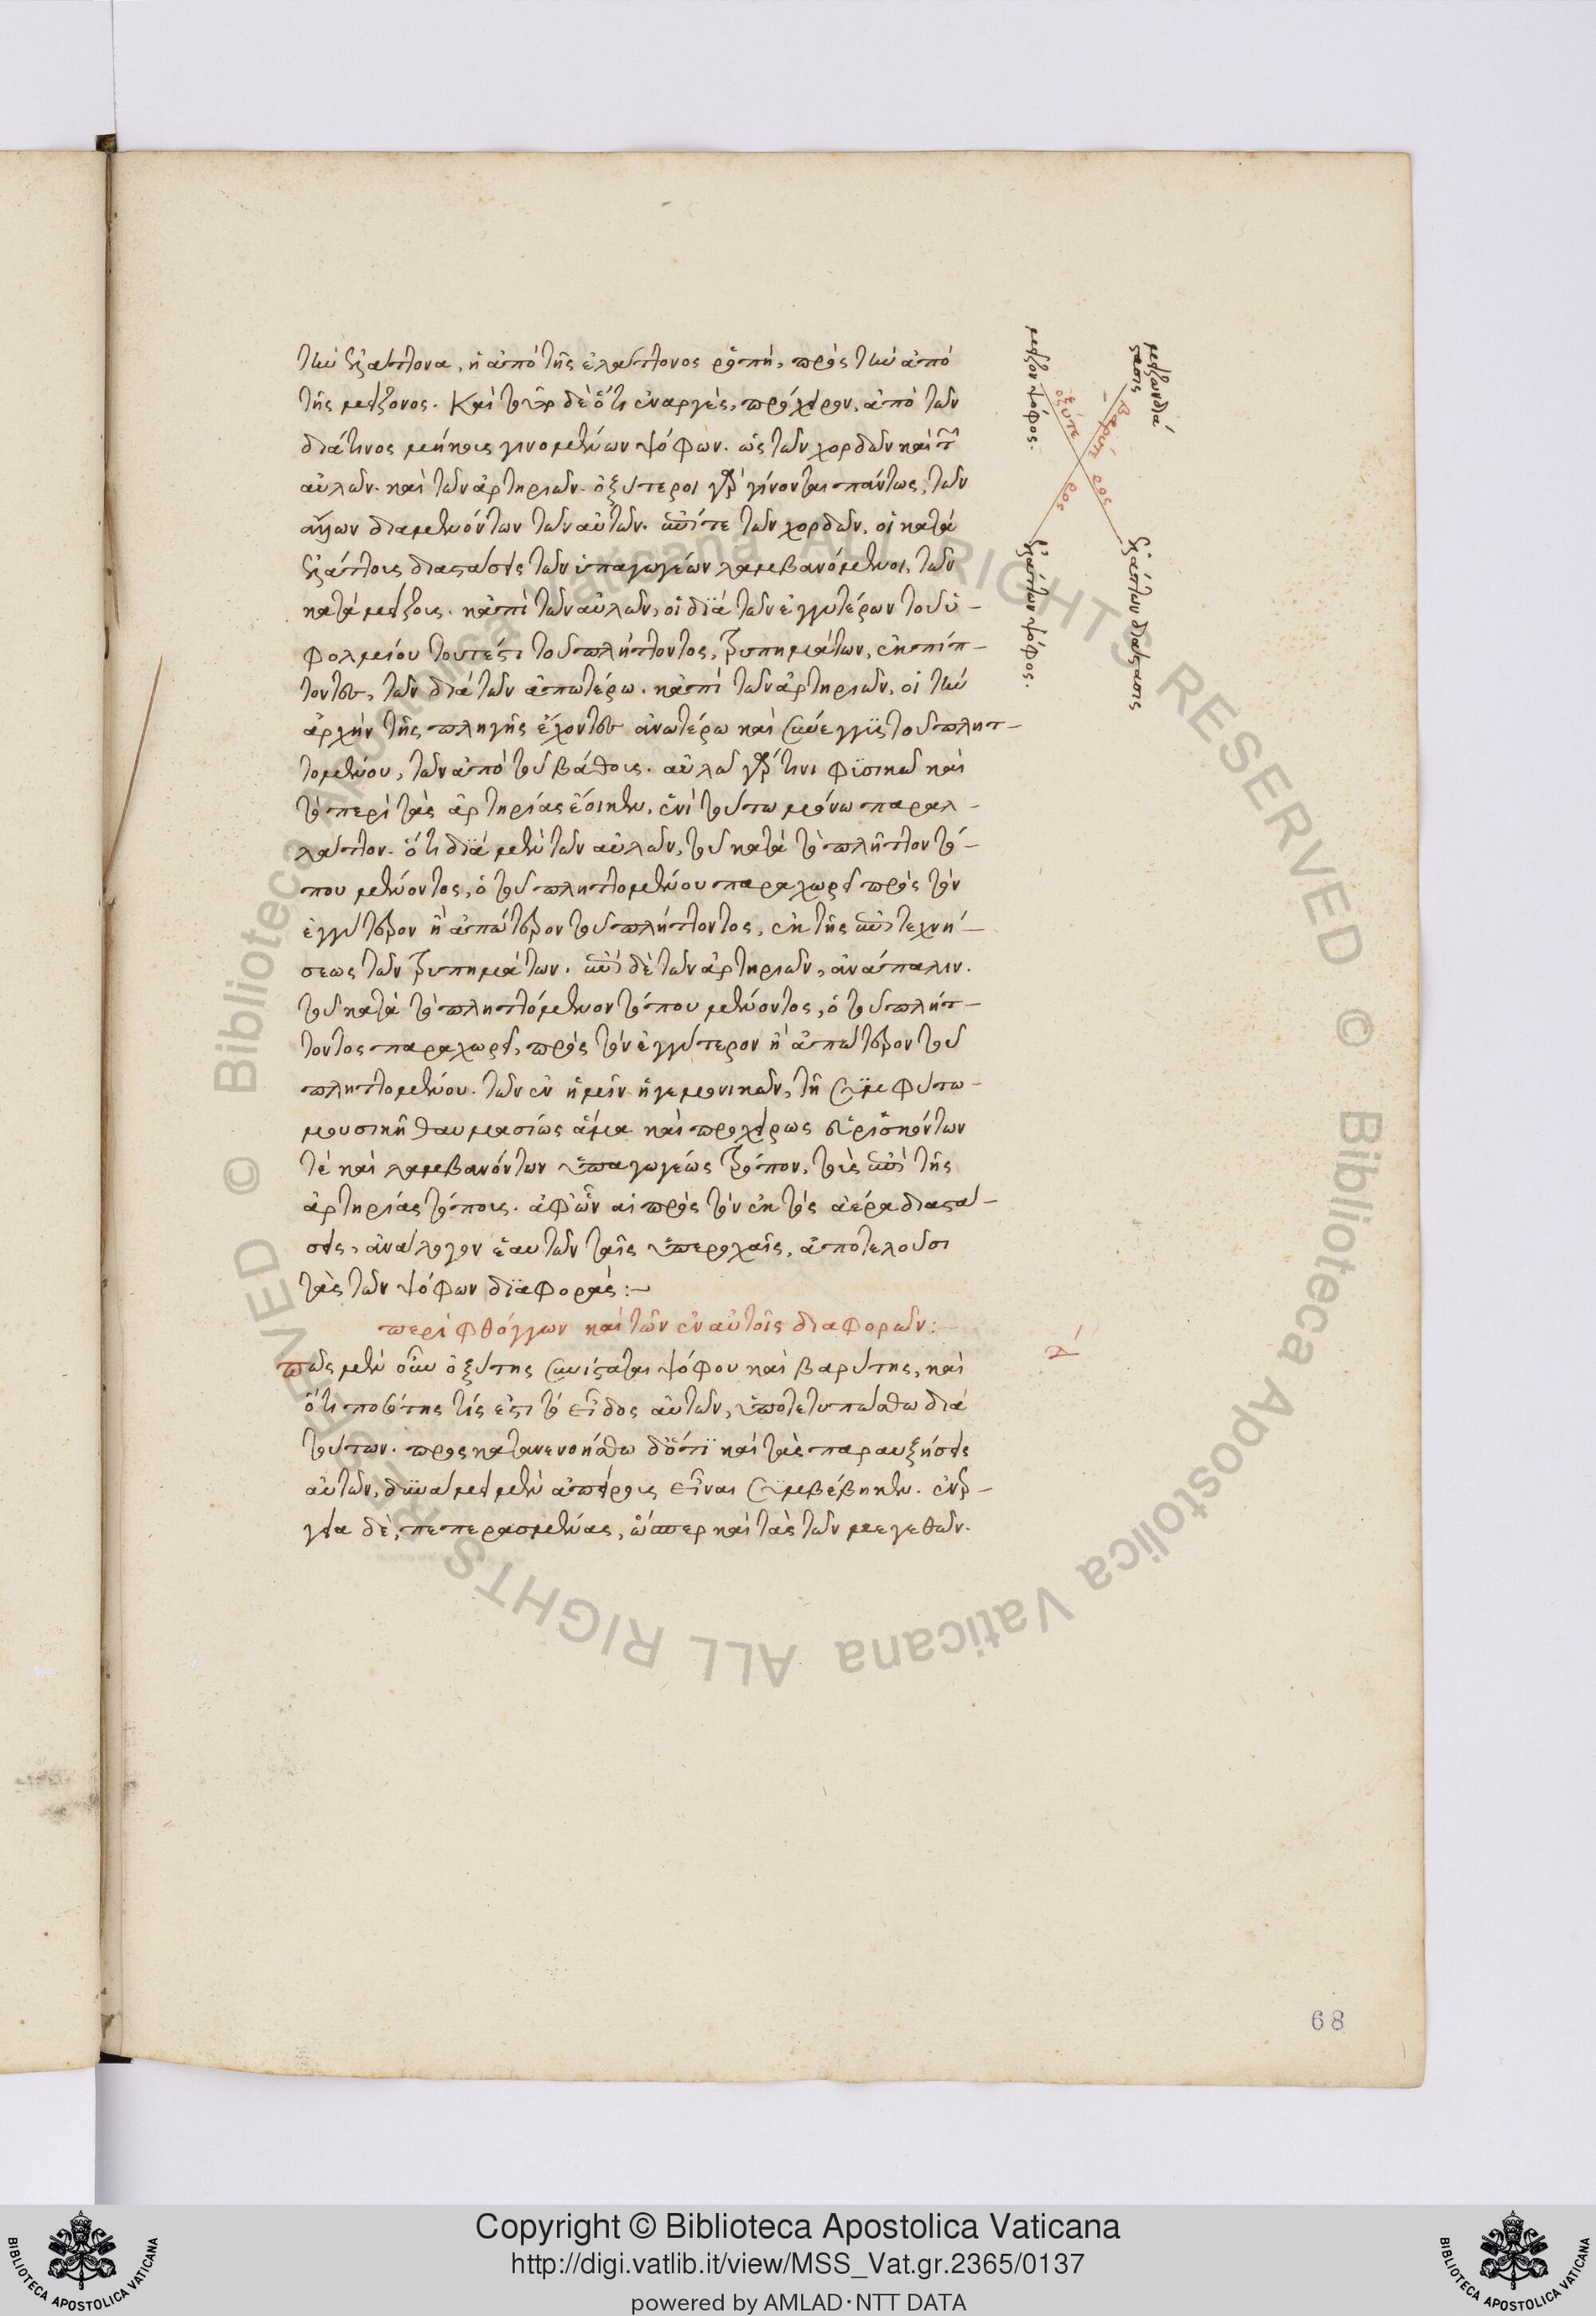 τὴν ἐλάττονα, ἡ ἀπὸ τῆς ἐλάττονος ῥοπὴ, πρὸς τὴν ἀπὸ
τῆς μείζονος. Καὶ τοῦτο δὲ ὅτι ἐναργὲς, πρόχειρον, ἀπὸ τῶν
διά τινος μήκους γινομένων ψόφων. ὡς τῶν χορδῶν καὶ τῶν
αὐλῶν. καὶ τῶν ἀρτηριῶν. ὀξύτεροι γὰρ γίνονται πάντως, τῶν
ἄλλων διαμενόντων τῶν αὐτῶν. ἐπί τε τῶν χορδῶν, οἱ κατὰ
ἐλάττους διαστάσεις τῶν ὑπαγωγέων λαμβανόμενοι, τῶν
κατὰ μείζους. κἀπὶ τῶν αὐλῶν, οἱ διὰ τῶν ἐγγυτέρων τοῦ ὑ-
φολμίου τουτέστι τοῦ πλήττοντος, τρυπημάτων, ἐκπίπ-
τοντες, τῶν διὰ τῶν ἀπωτέρω. κἀπὶ τῶν ἀρτηριῶν, οἱ τὴν
ἀρχὴν τῆς πληγῆς ἔχοντες ἀνωτέρω καὶ σύνεγγυς τοῦ πλητ-
τομένου, τῶν ἀπὸ τοῦ βάθους. αὐλῷ γάρ τινι φυσικῷ καὶ
τὸ περὶ τὰς ἀρτηρίας ἔοικεν, ἑνὶ τούτω μόνω παραλ-
λάττον. ὅτι διὰ μὲν τῶν αὐλῶν, τοῦ κατὰ τὸ πλῆττον τό-
που μένοντος, ὁ τοῦ πληττομένου παραχωρεῖ πρὸς τὸν
ἐγγύτερον ἢ ἀπώτερον τοῦ πλήττοντος, ἐκ τῆς ἐπιτεχνή-
σεως τῶν τρυπημάτων. ἐπὶ δὲ τῶν ἀρτηριῶν, ἀνάπαλιν.
τοῦ κατὰ τὸ πληττόμενον τόπου μένοντος, ὁ τοῦ πλήτ-
τοντος παραχωρεῖ, πρὸς τὸν ἐγγύτερον ἢ ἀπώτερον τοῦ
πληττομένου. τῶν ἐν ἡμῖν ἡγεμονικῶν, τῇ συμφύτω
μουσικῇ θαυμασίως ἅμα καὶ προχείρως εὑρισκόντων
τὲ καὶ λαμβανόντων ὑπαγωγέως τρόπον, τοὺς ἐπὶ τῆς
ἀρτηρίας τόπους. ἀφ' ὧν αἱ πρὸς τὸν ἐκτὸς ἀέρα διαστά-
σεις, ἀνάλογον ἑαυτῶν ταῖς ὑπεροχαῖς, ἀποτελοῦσι
τὰς τῶν ψόφων διαφοράς:-
περὶ φθόγγων καὶ τῶν ἐν αὐτοῖς διαφορῶν:-
δ'
πῶς μὲν οὖν ὀξύτης συνίσταται ψόφου καὶ βαρύτης, καὶ
ὅτι ποσότης τίς ἐστι τὸ εἶδος αὐτῶν, ὑποτετυπώσθω διὰ
τούτων. προσκατανενοήσθω δὅτι καὶ τὰς παραυξήσεις
αὐτῶν, δυνάμει μὲν ἀπείρους εἶναι συμβέβηκεν. ἐνερ-
γεία δὲ, πεπερασμένας, ὥσπερ καὶ τὰς τῶν μεγεθῶν.
μείζων διά
στασις
μείζων ψόφος.
ὀξύτε
ρος
βαρύτε
ρος
ἐλάττων διάστασις
ἐλάττων ψόφος.
68
© Biblioteca Apostolica Vaticana ALL RIGHTS RESERVED © Biblioteca Apostolica Vaticana ALL RIGHTS RESERVED
Copyright © Biblioteca Apostolica Vaticana
http://digi.vatlib.it/view/MSS_Vat.gr.2365/0137
powered by AMLAD·NTT DATA
BIBLIOTECA APOSTOLICA VATICANA
BIBLIOTECA APOSTOLICA VATICANA